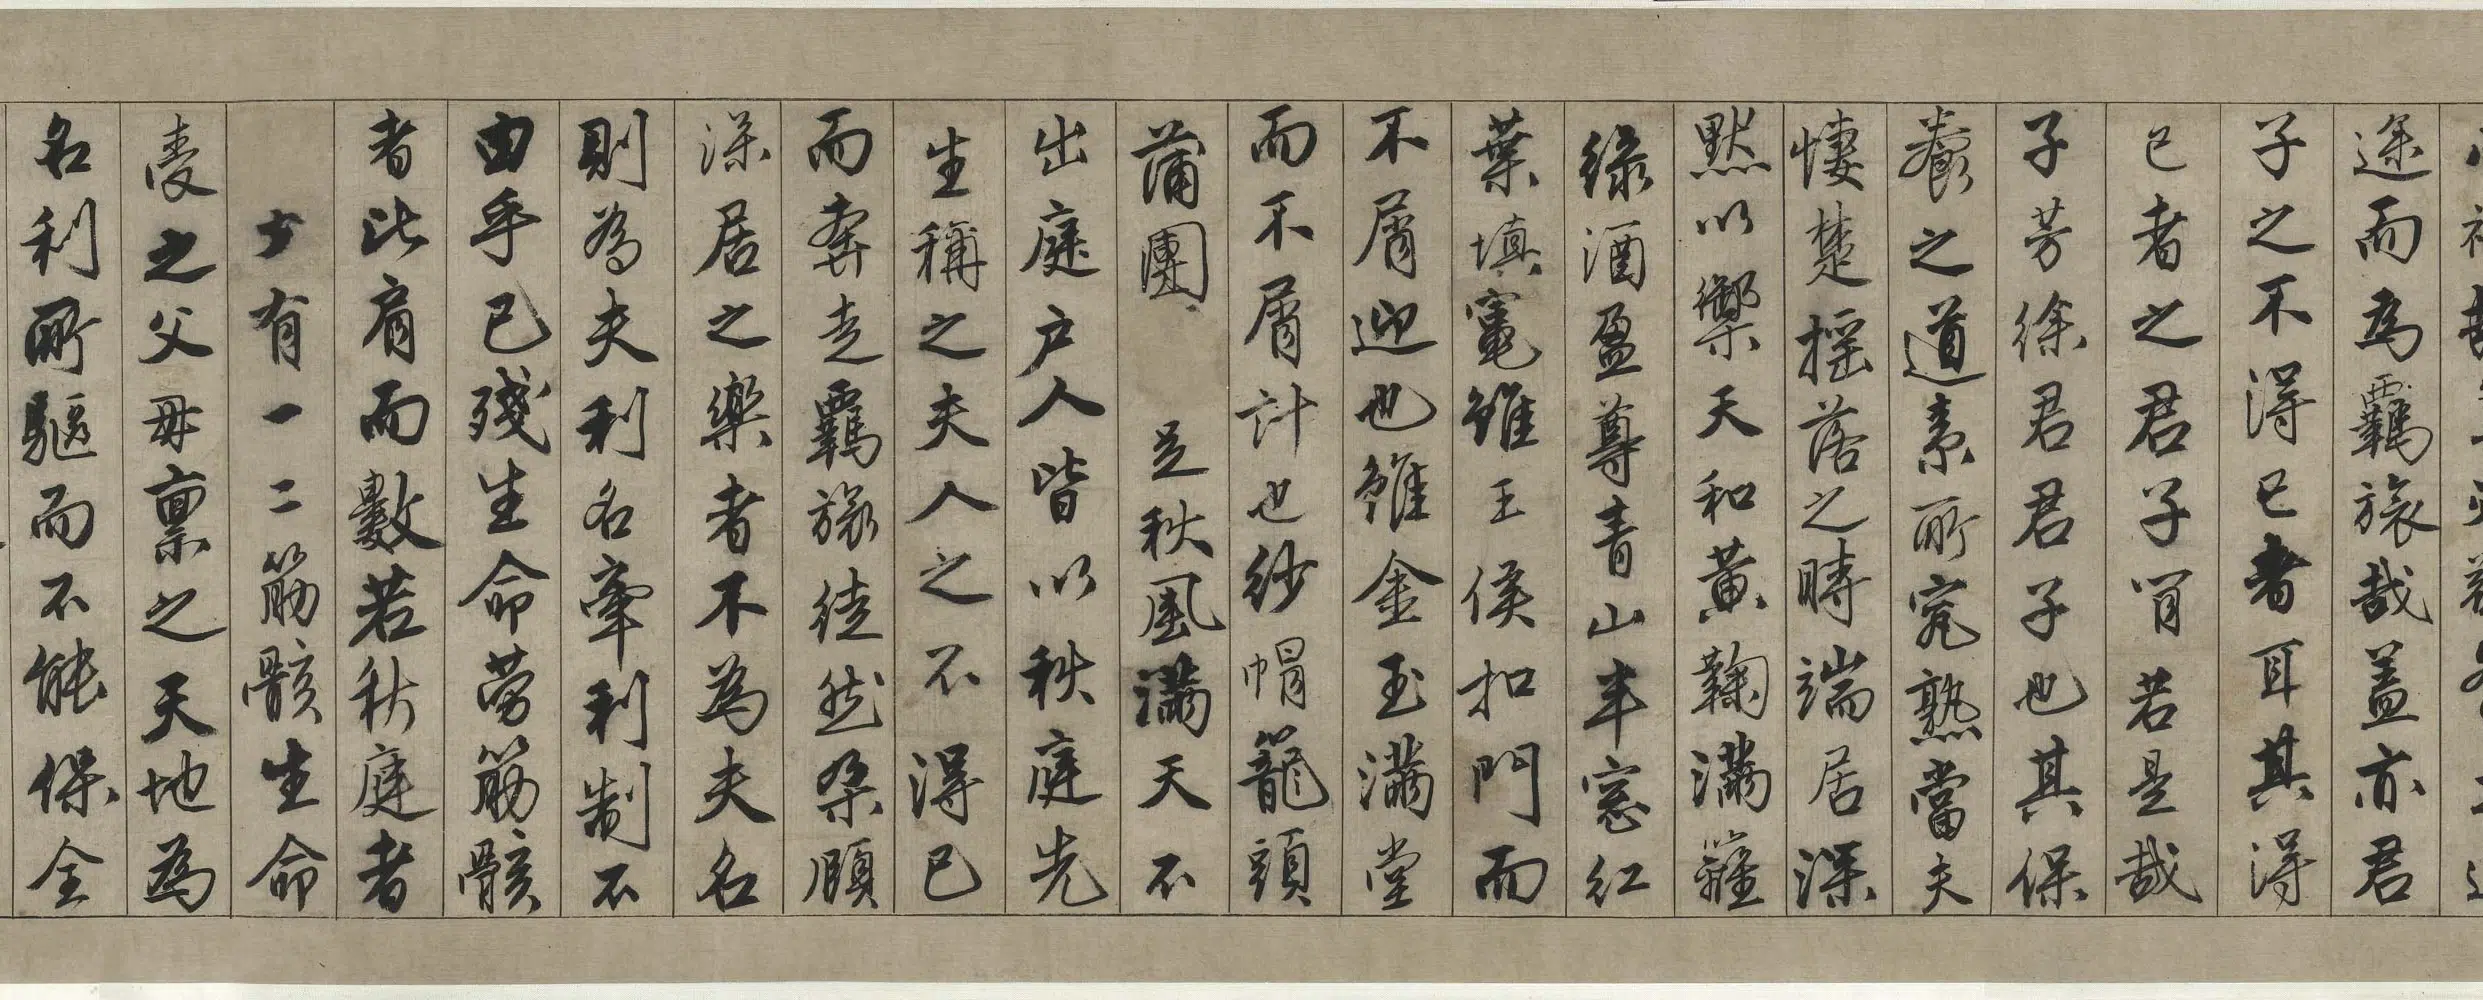 途而為羈旅哉蓋亦君
子之不得已者耳其得
已者之君子肎若是哉
子芳徐君君子也其保
養之道素所究熟當夫
悽楚搖落之時端居深
默以樂天和黃鞠滿籬
綠酒盈尊青山半窓紅
葉填竃雖王侯扣門而
不屑迎也雖金玉滿堂
而不屑計也紗帽籠頭
蒲團 足秋風滿天不
出庭户人皆以秋庭先
生稱之夫人之不得已
而奔走羈旅徒然朶頤
深居之樂者不為夫名
則為夫利名牽利制不
由乎已殘生命勞筋骸
者比肩而數若秋庭者
少有一二筋骸生命
受之父母禀之天地為
名利所驅而不能保全